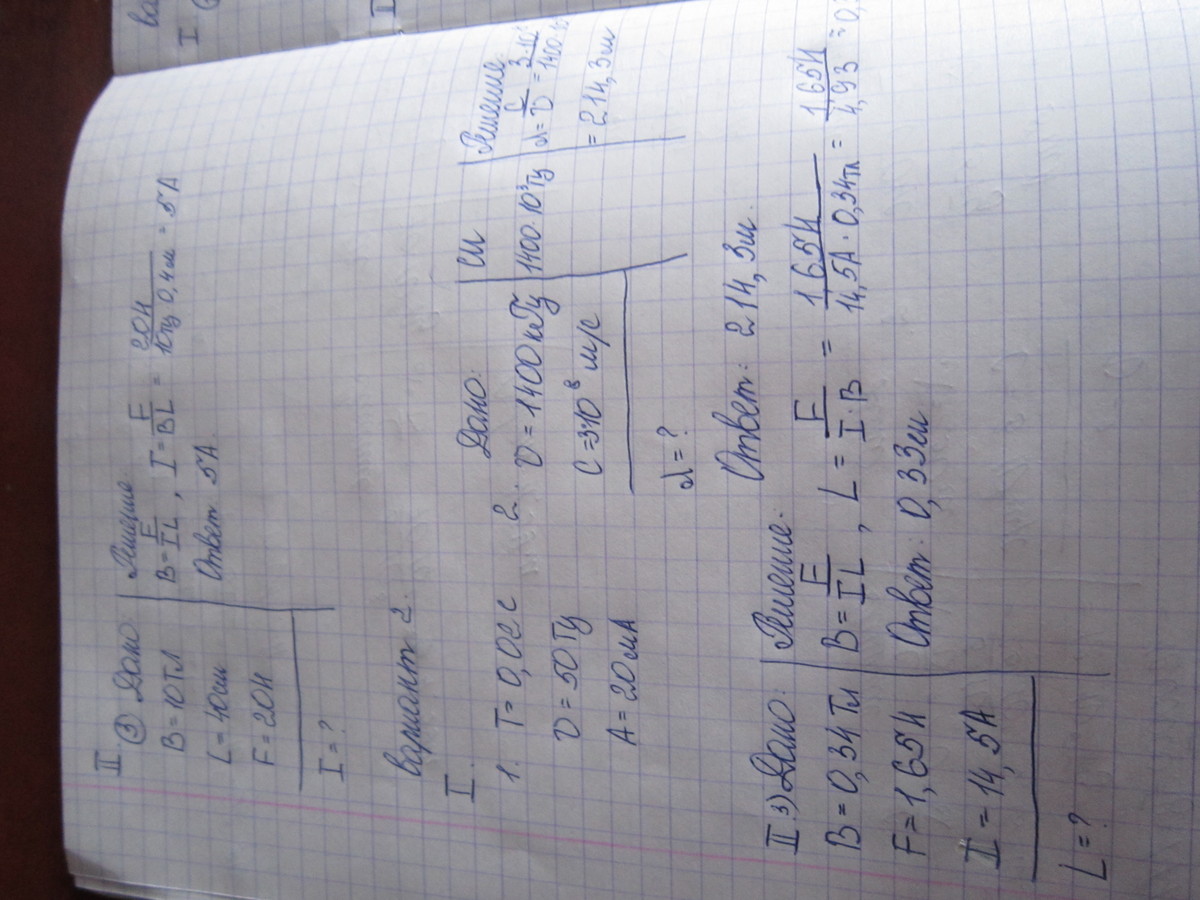 II.
③ Дано:
B = 10Тл
L = 40см
F = 20Н
I = ?
Решение
B = F/IL , I = F/BL = 20Н/10Тл 0,4м = 5А
Ответ 5А.
Вариант 2.
I.
1. T = 0,02 с
ν = 50 Гц
A = 20 мА
2. Дано:
ν = 1400 кГц
C = 3·10⁸ м/с
λ = ?
СИ
1400·10³Гц
Решение:
λ = C/ν = 3·10⁸/1400·10
= 214,3м
Ответ: 214,3м.
II 3) Дано:
B = 0,34 Тл
F = 1,65Н
I = 14,5А
L = ?
Решение:
B = F/IL , L = F/I·B = 1,65Н/14,5А·0,34Тл = 1,65Н/4,93 ≈ 0,
Ответ: 0,33м